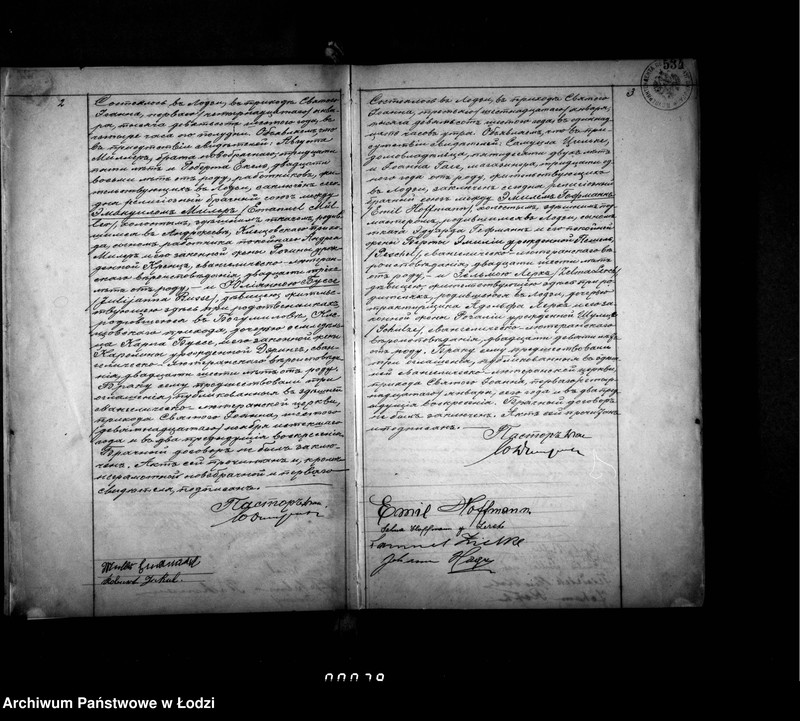 2
Состоялось въ Лодзи, въ приходѣ Святого
Іоанна, перваго /четырнадцатаго/ янва-
ря, тысяча девятьсотъ шестого года, въ
четыре часа по полудни. Объявляемъ, что
въ присутствіи свидѣтелей: Августа
Миллеръ, брата новобрачнаго, тридцати
пяти лѣтъ и Роберта Екель, двадцати
восьми лѣтъ отъ роду, работниковъ, жи-
тельствующихъ въ Лодзи, заключенъ сего-
дня религіозный брачный союзъ между
Эмануиломъ Миллеръ /Emanuel Mül-
ler/, холостымъ, здѣшнимъ ткачомъ, родив-
шимся въ прихо-
да, сыномъ работника покойнаго Андрея
Миллеръ и его законной жены урож-
денной евангелическо-лютеран-
скаго вѣроисповѣданія, двадцати трехъ
лѣтъ отъ роду, — и Юліанною Буссе
/Julijanna Busse/, дѣвицею, житель-
ствующею здѣсь при родственникахъ
родившеюся въ Богумиловѣ,
прихода, дочерью
Карла Буссе и его законной жены
Каролины урожденной еван-
гелическо-лютеранскаго вѣроисповѣда-
нія, двадцати шести лѣтъ отъ роду.
Браку сему предшествовали три
оглашенія, публикованныя въ здѣшней
евангелическо-лютеранской церкви,
прихода Святого Іоанна, шестого
/девятнадцатаго/ ноября истекшаго
года и въ два предыдущія воскресенія.
Брачный договоръ не былъ заклю-
ченъ. Актъ сей прочитанъ и, кромѣ
неграмотной новобрачной и перваго
свидѣтеля, подписанъ.
Пасторъ
Müller Emanuel
3
534
Состоялось въ Лодзи, въ приходѣ Святого
Іоанна, третьяго /шестнадцатаго/ января,
тысяча девятьсотъ шестого года, въ одиннад-
цать часовъ утра. Объявляемъ, что въ при-
сутствіи свидѣтелей: Самуила Цильке,
домовладѣльца, пятидесяти двухъ лѣтъ
и Іоанна Гаге, тридцати од-
ного года отъ роду, жительствующихъ
въ Лодзи, заключенъ сегодня религіозный
брачный союзъ между Эмилемъ Гофманъ
/Emil Hoffmann/, холостымъ, здѣшнимъ
родившимся въ Лодзи, сыномъ
ткача Эдуарда Гофманъ и его покойной
жены Берты Эмиліи урожденной Пешель
/Peschel/, евангелическо-лютеранскаго вѣ-
роисповѣданія, двадцати шести лѣтъ
отъ роду, — и Зельмою Лерхе /Selma Lerch/
дѣвицею, жительствующею здѣсь при ро-
дителяхъ, родившеюся въ Лодзи, дочерью
трактирщика Адольфа Лерхе и его за-
конной жены Розаліи урожденной Шульцъ
/Schulze/, евангелическо-лютеранскаго
вѣроисповѣданія, двадцати девяти лѣтъ
отъ роду. Браку сему предшествовали
три оглашенія, публикованныя въ здѣш-
ней евангелическо-лютеранской церкви,
прихода Святого Іоанна, перваго /четыр-
надцатаго/ января, сего года и въ два пре-
дыдущія воскресенія. Брачный договоръ
не былъ заключенъ. Актъ сей прочитанъ
и подписанъ.
Пасторъ
Emil Hoffmann
Selma Hoffmann g. Lerch
Samuel Zielke
Johann Hage
00079
Archiwum Państwowe w Łodzi